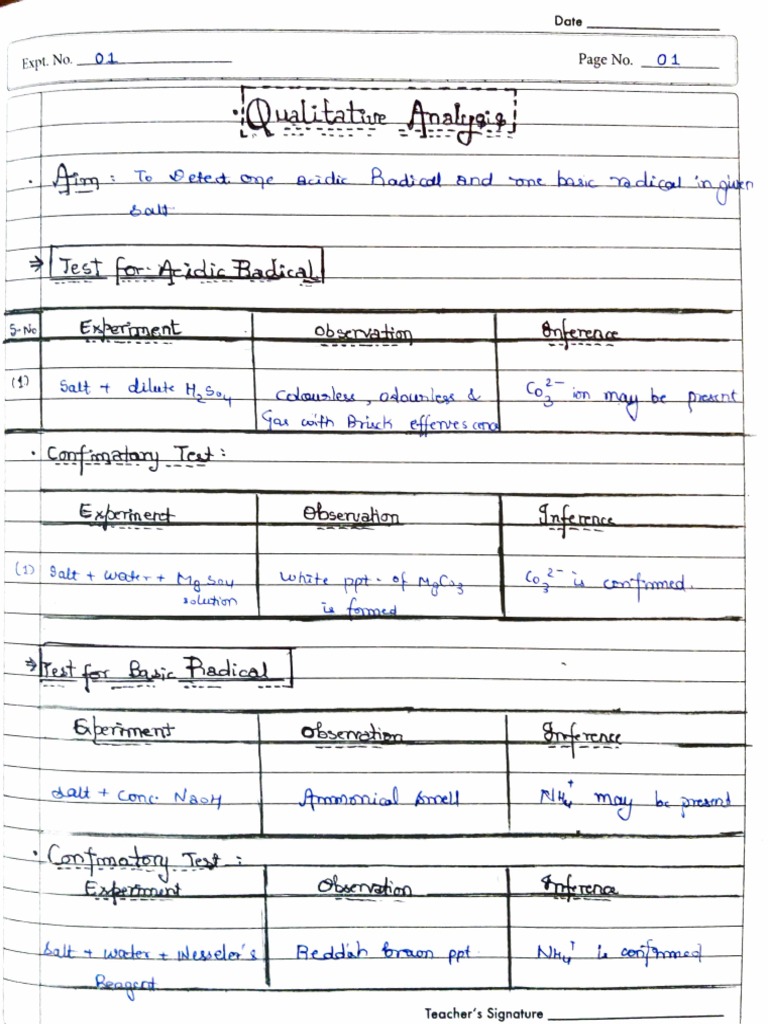 Date
Expt. No. 01 Page No. 01
Qualitative Analysis
Aim : To Detect one acidic Radical and one basic radical in given
salt
⇒ Test for Acidic Radical
S.No Experiment Observation Inference
(1) Salt + dilute H2SO4 Colourless, odourless & CO3^2- ion may be present
Gas with Brisk effervescence
• Confimatary Test :
Experiment Observation Inference
(1) Salt + water + MgSO4 White ppt. of MgCO3 CO3^2- is confirmed.
solution is formed
⇒ Test for Basic Radical
Experiment Observation Inference
Salt + Conc. NaOH Ammonical smell NH4^+ may be present
• Confimatory Test :
Experiment Observation Inference
Salt + water + Nesseler's Reddish brown ppt. NH4^+ is confirmed
Reagent
Teacher's Signature